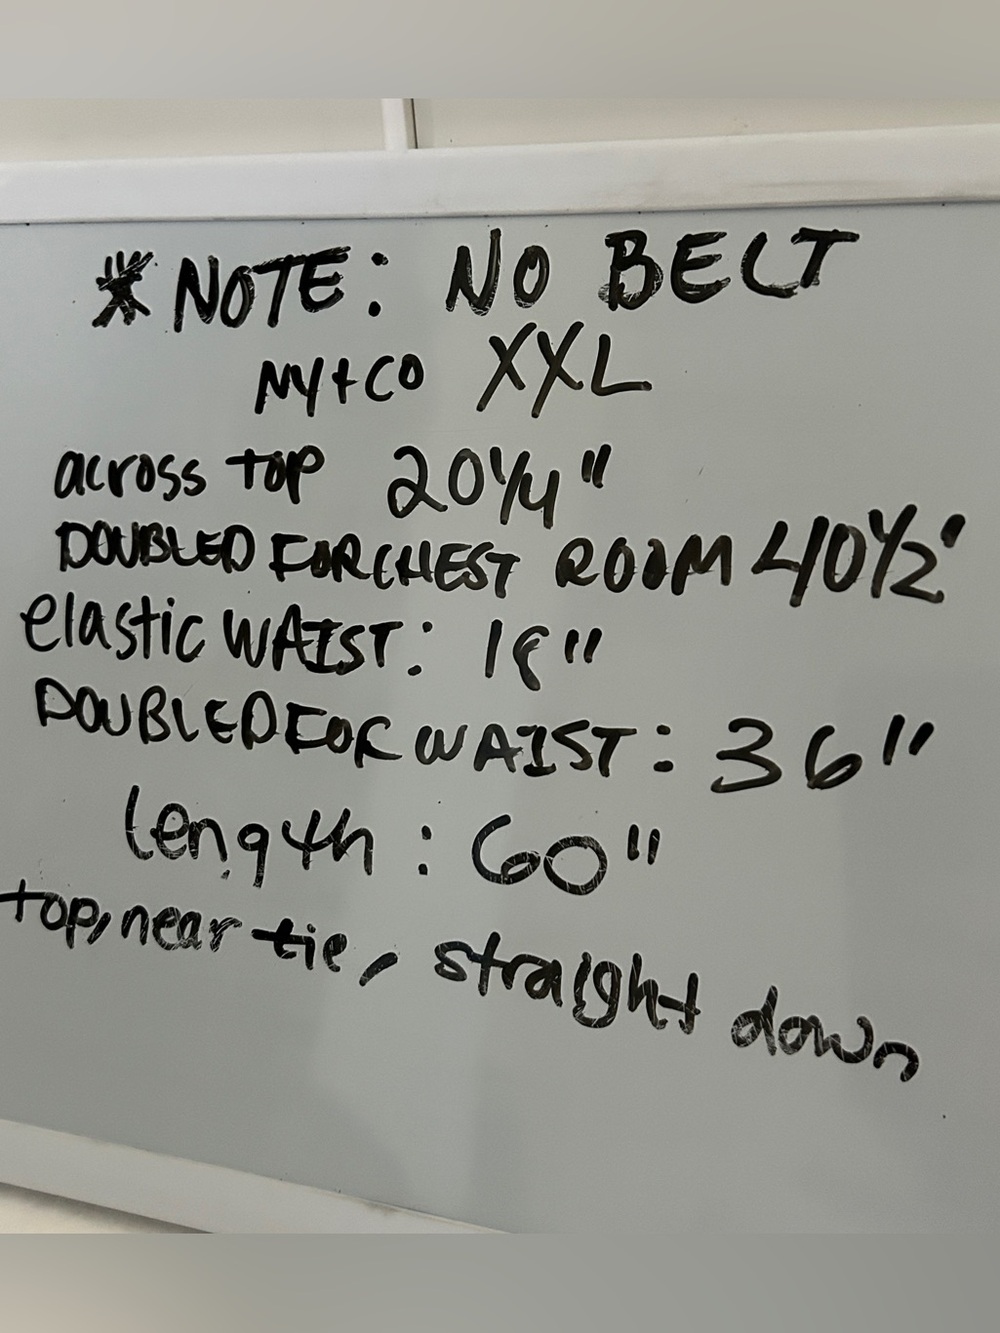 * NOTE: NO BELT
NY+CO XXL
across top 20 1/4"
DOUBLED FOR CHEST ROOM 40 1/2"
elastic WAIST: 18"
DOUBLED FOR WAIST: 36"
length: 60"
top, near tie, straight down